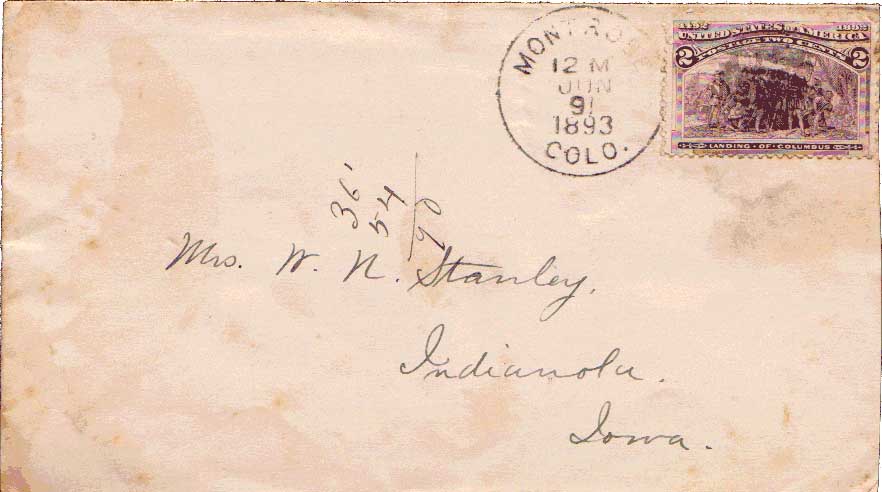 MONTROSE
12 M
JUN
9
1893
COLO.
1492 1892
UNITED STATES OF AMERICA
POSTAGE TWO CENTS
2 2
LANDING · OF · COLUMBUS
36
54
90
Mrs. W. N. Stanley.
Indianola.
Iowa.